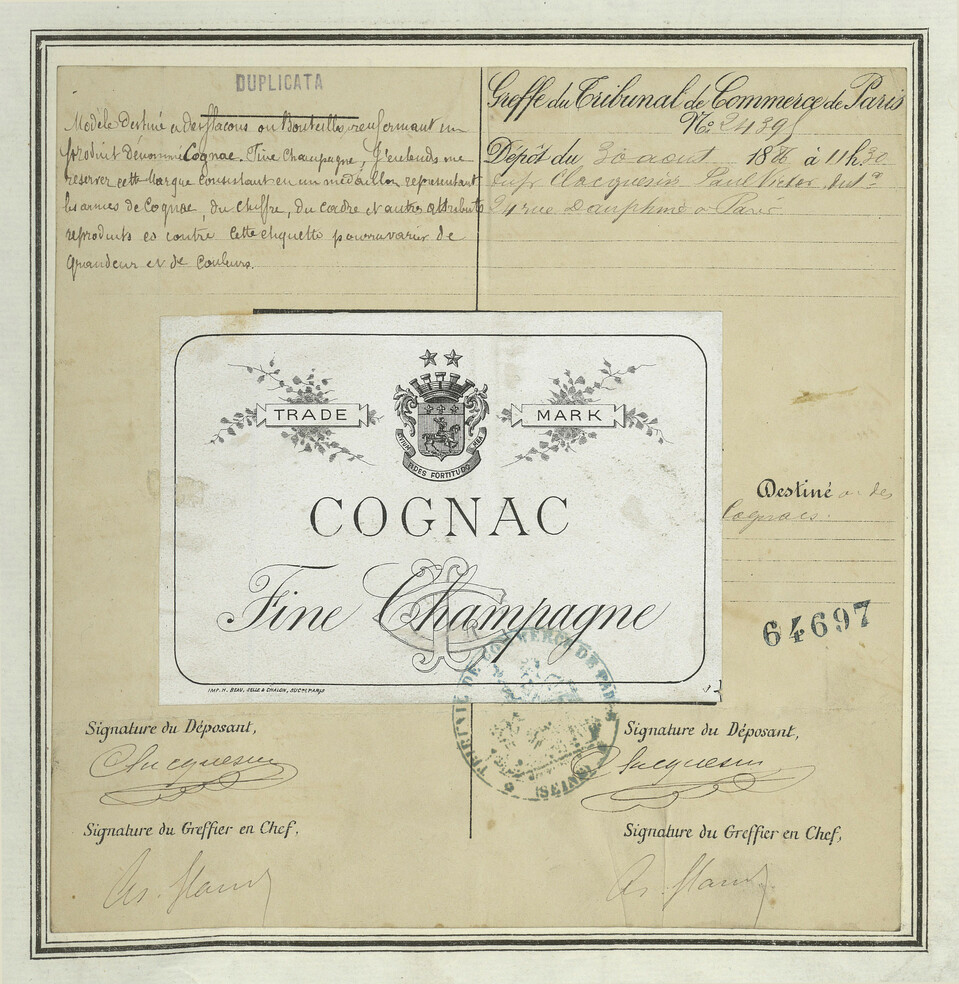 DUPLICATA
Modèle destiné a des flacons ou Bouteilles, renfermant un
produit dénommé Cognac, Fine Champagne, J'entends me
réserver cette Marque Consistant en un médaillon représentant
les armes de Cognac, du chiffre, du cadre et autres attributs
reproduits ci contre Cette etiquette pourra varier de
Grandeur et de Couleurs.
Greffe du Tribunal de Commerce de Paris
No: 24395
Dépôt du 30 aout 1886 à 11h.30
Clacquesin Paul Victor
24 rue Dauphine a Paris
TRADE MARK
FIDES FORTITUDO
COGNAC
Fine Champagne
IMP. H. BEAU, SELLE & CHALON, SUCrs PARIS
Destiné a des
Cognacs.
64697
TRIBUNAL DE COMMERCE DE PARIS
(SEINE)
Signature du Déposant,
Clacquesin
Signature du Greffier en Chef,
Signature du Déposant,
Clacquesin
Signature du Greffier en Chef,